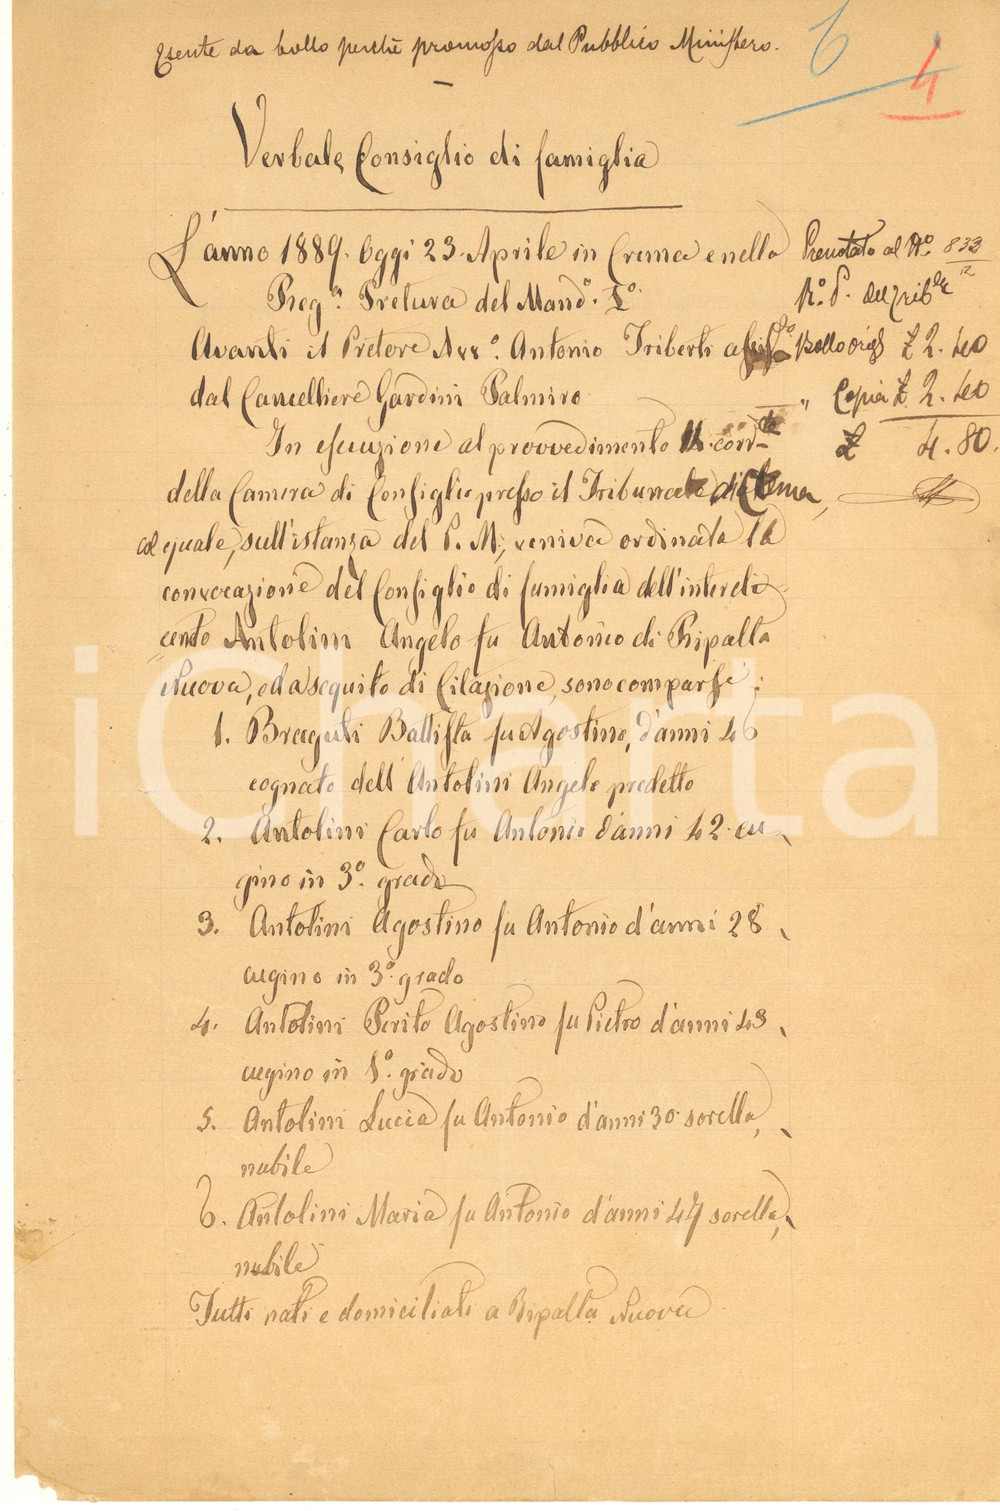 Esente da bollo perchè promosso dal Pubblico Ministero.
6
4
Verbale Consiglio di famiglia
L'anno 1889. Oggi 23. Aprile in Crema e nella
Reg.ª Pretura del Mand.º I.º
Avanti il Pretore Avv.º Antonio Triberti assist.º
dal Cancelliere Gardini Palmiro
Prenotato al Nº. 833
R.º P. del Trib.le
Bollo orig. £ 2.40
" Copia £ 2.40
£ 4.80.
In esecuzione al provvedimento 11. corr.te
della Camera di Consiglio presso il Tribunale di Crema,
col quale, sull'istanza del P. M., veniva ordinata la
convocazione del Consiglio di famiglia dell'interdi-
cento Antolini Angelo fu Antonio di Ripalta
Nuova, ed a seguito di Citazione, sono comparse:
1. Braguti Battista fu Agostino, d'anni 46
cognato dell'Antolini Angelo predetto
2. Antolini Carlo fu Antonio d'anni 42. cu-
gino in 3º. grado
3. Antolini Agostino fu Antonio d'anni 28
cugino in 3º. grado
4. Antolini Perito Agostino fu Pietro d'anni 43
cugino in 1º. grado
5. Antolini Lucia fu Antonio d'anni 30. sorella,
nubile
6. Antolini Maria fu Antonio d'anni 47 sorella,
nubile
Tutti nati e domiciliati a Ripalta Nuova
iCharta